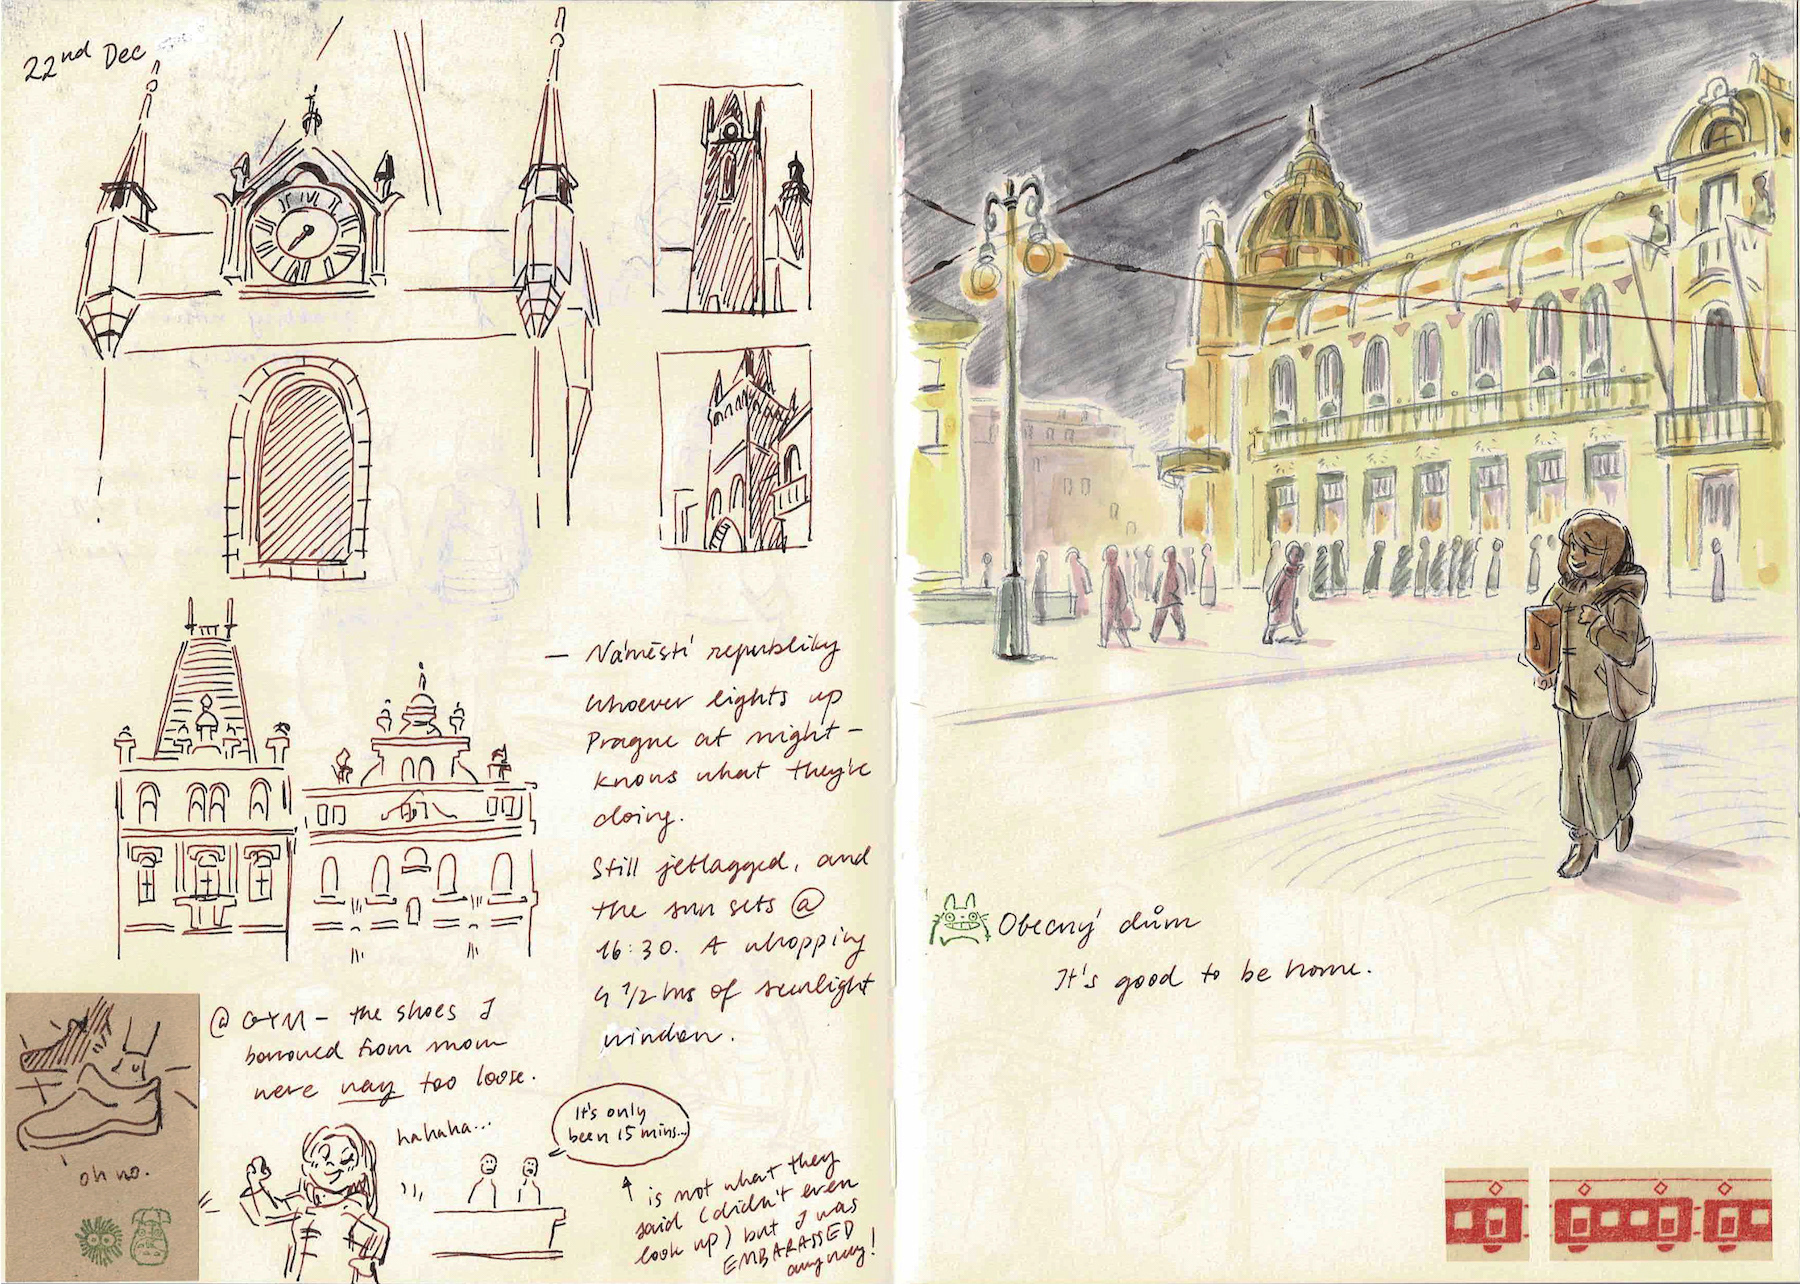 22nd Dec
— Náměstí republiky
Whoever lights up
Prague at night —
knows what they're
doing.
Still jetlagged, and
the sun sets @
16:30. A whopping
4 1/2 hrs of sunlight
window.
@ GYM — the shoes I
borrowed from mom
were way too loose.
oh no.
hahaha...
It's only
been 15 mins...
↑ is not what they
said (didn't even
look up) but I was
EMBARASSED
anyway!
Obecný dům
It's good to be home.